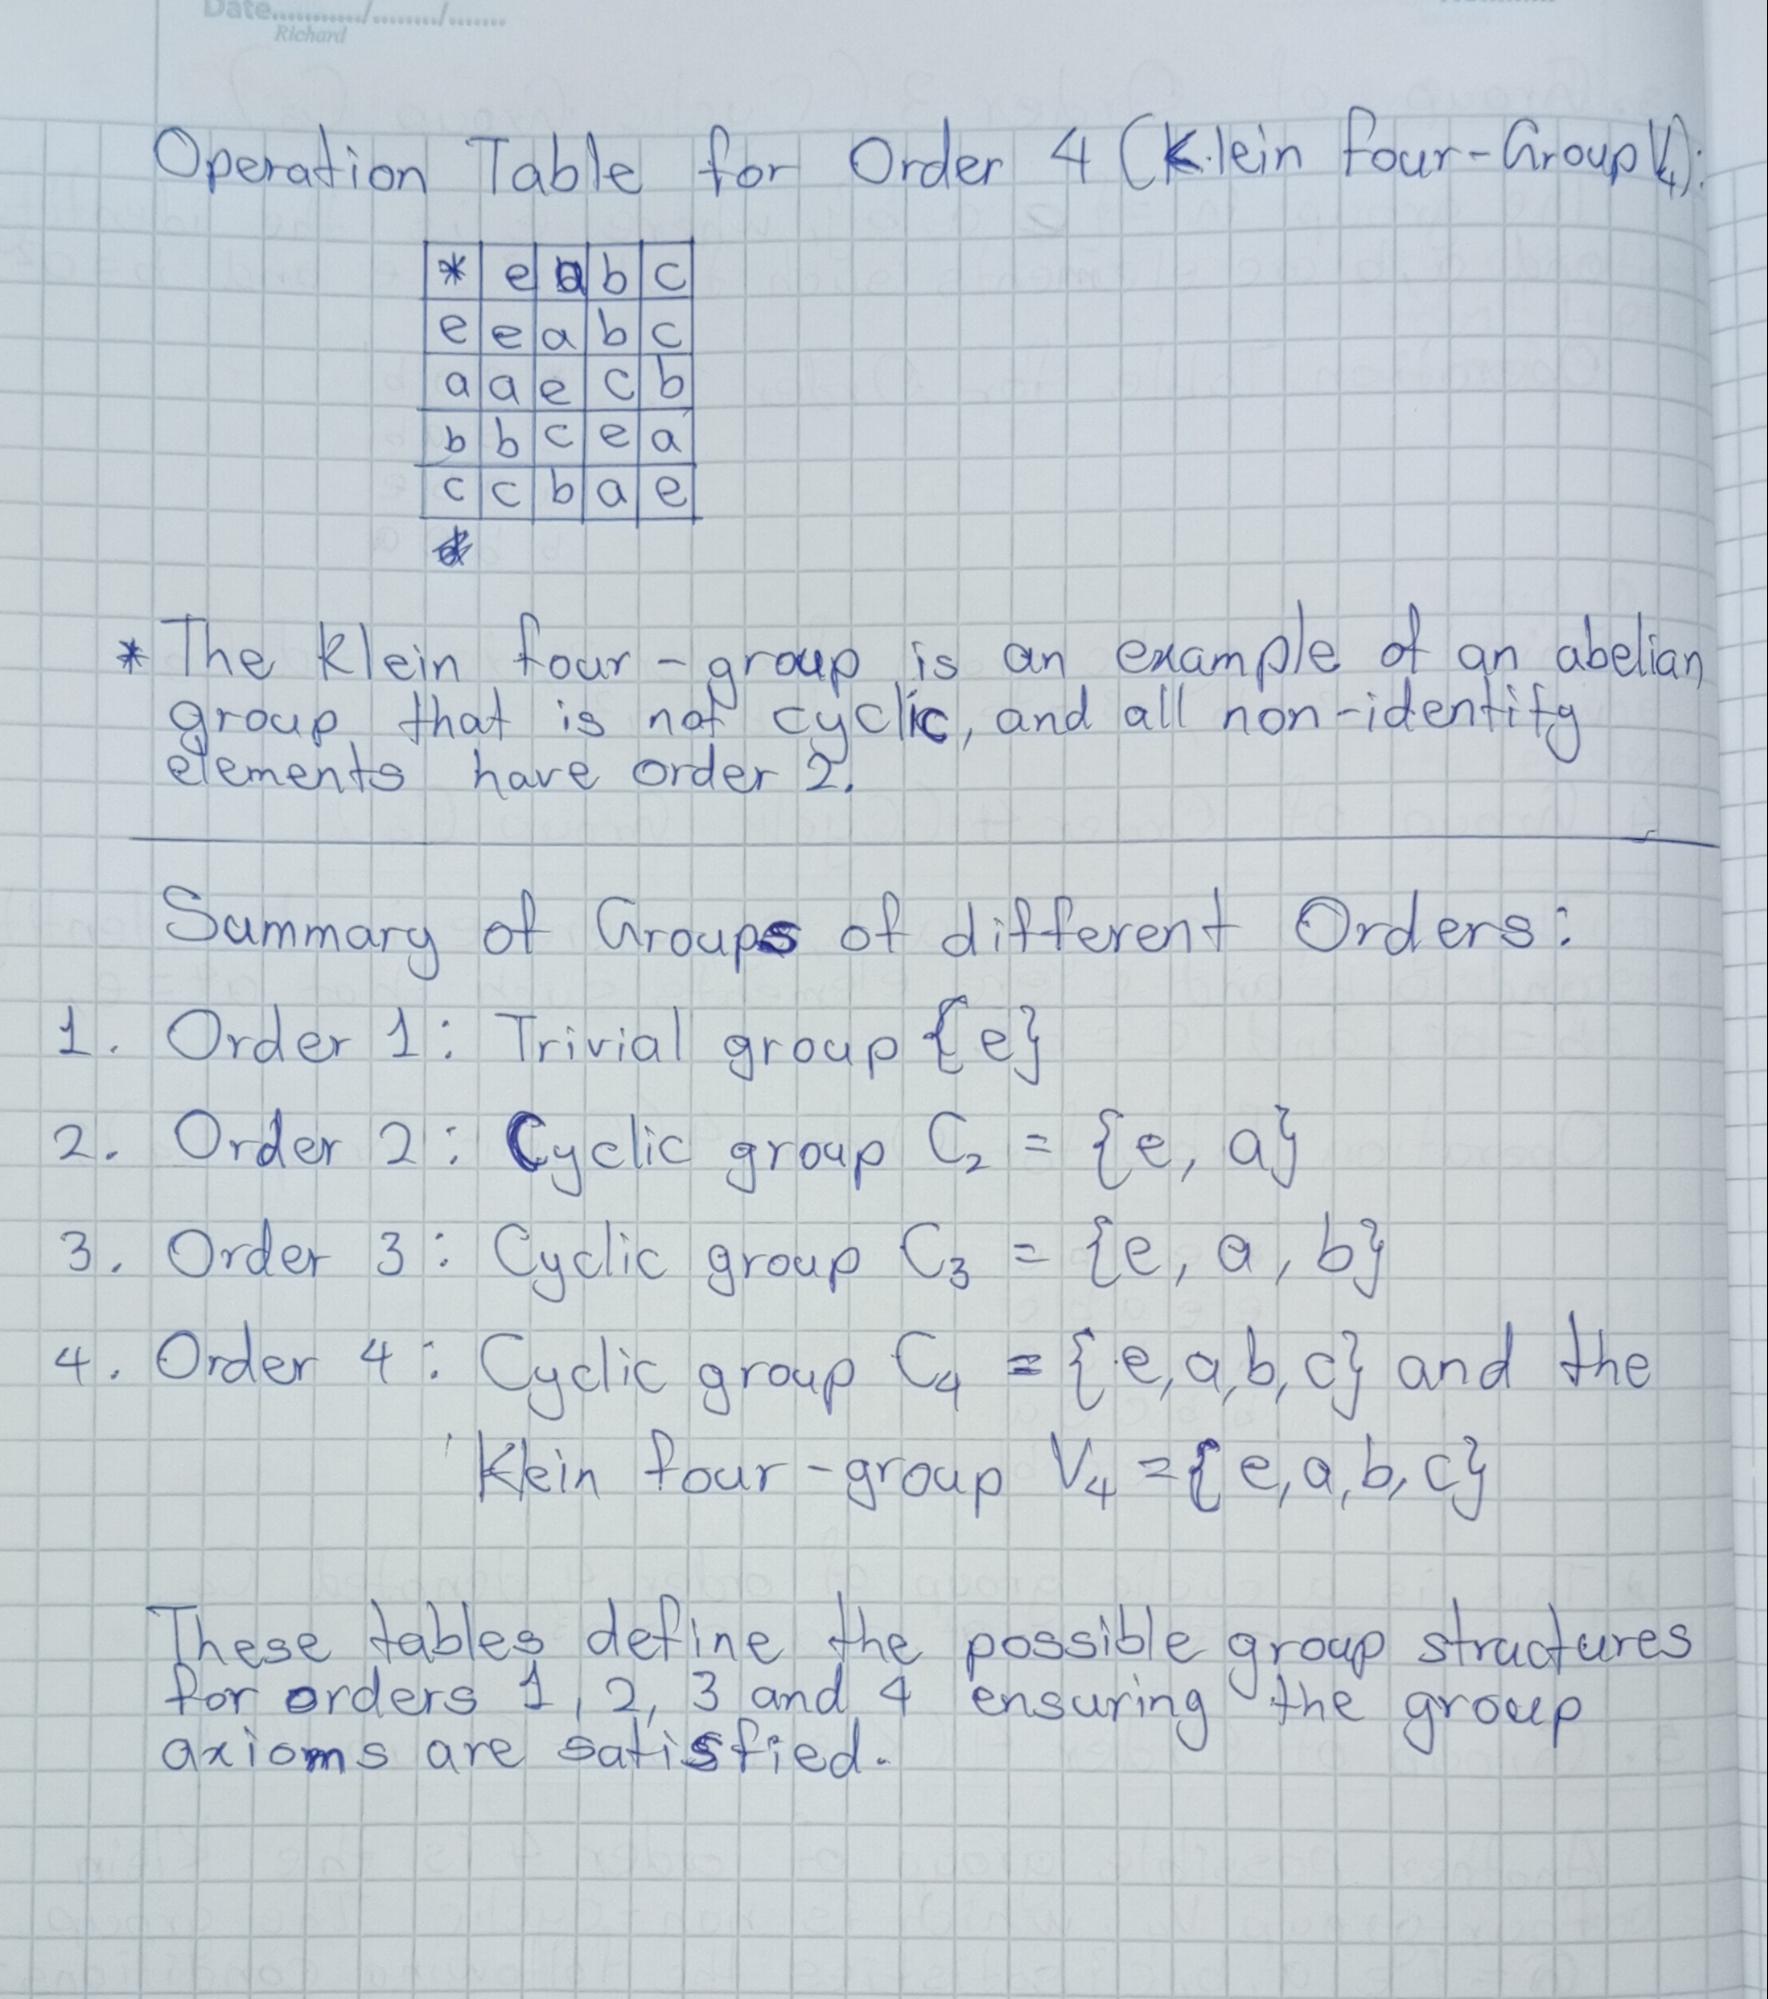 Date.........../......../.......
Richard
Operation Table for Order 4 (Klein four-Group V4):
* e a b c
e e a b c
a a e c b
b b c e a
c c b a e
* The Klein four-group is an example of an abelian
group that is not cyclic, and all non-identity
elements have order 2.
Summary of Groups of different Orders:
1. Order 1: Trivial group {e}
2. Order 2: Cyclic group C₂ = {e, a}
3. Order 3: Cyclic group C₃ = {e, a, b}
4. Order 4: Cyclic group C₄ = {e,a,b,c} and the
Klein four-group V₄ = {e,a,b,c}
These tables define the possible group structures
for orders 1, 2, 3 and 4 ensuring the group
axioms are satisfied.